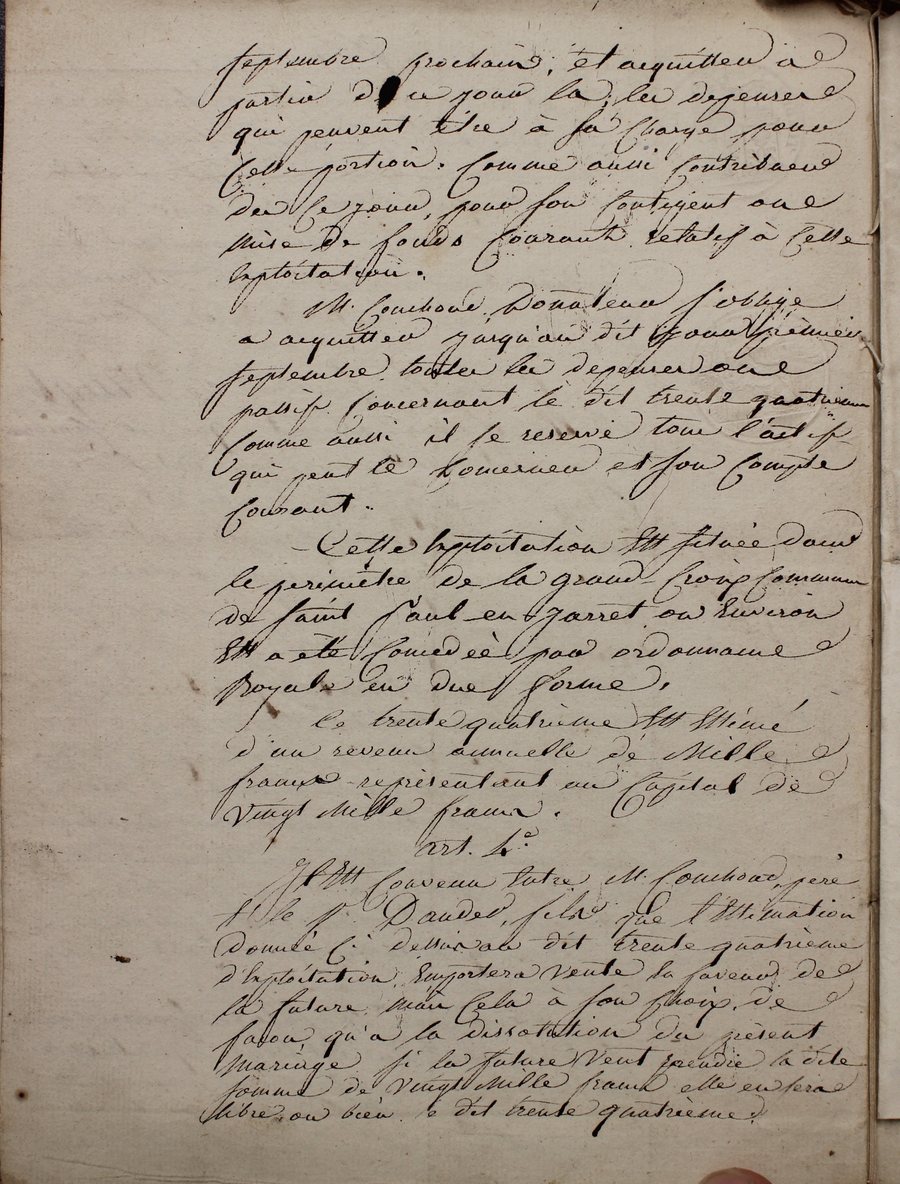 septembre prochain, et acquitter a
partir de ce jour la, les depenses
qui peuvent être à sa Charge pour
Cette portion. Comme aussi Contribuer
des Ce jour, pour son Contigent aux
mise de fonds Courant relatif à Cette
Exploitation.
M. Couchoud Donateur s'oblige
a acquitter jusqu'au dit jour premier
septembre toutes les depenses aux
passif Concernant le dit trente quatrieme
Comme aussi il se reserve tout l'actif
qui peut le Concerner et son Compte
Courant.
Cette Exploitation Est située dans
le perimêtre de la grand-Croix Commune
de Saint Paul-en-Jarret ou Environ
Et a été Concedée par ordonnance
Royale en due forme.
Le trente quatrieme Est Estimé
d'un revenu annuelle de Mille
francs représentant un Capital de
Vingt Mille francs.
art. 4.e
Il Est Convenu Entre M. Couchoud, père
Et le Sr. Dandes, fils que l'Estimation
donnée Ci dessus au dit trente quatrième
d'Exploitation, Emportera Vente En faveur de
la future, mais Cela à son Choix, de
façon qu'a la dissolution du présent
mariage si la future Veut prendre la dite
somme de Vingt Mille francs elle en sera
libre, ou bien le dit trente quatrième.